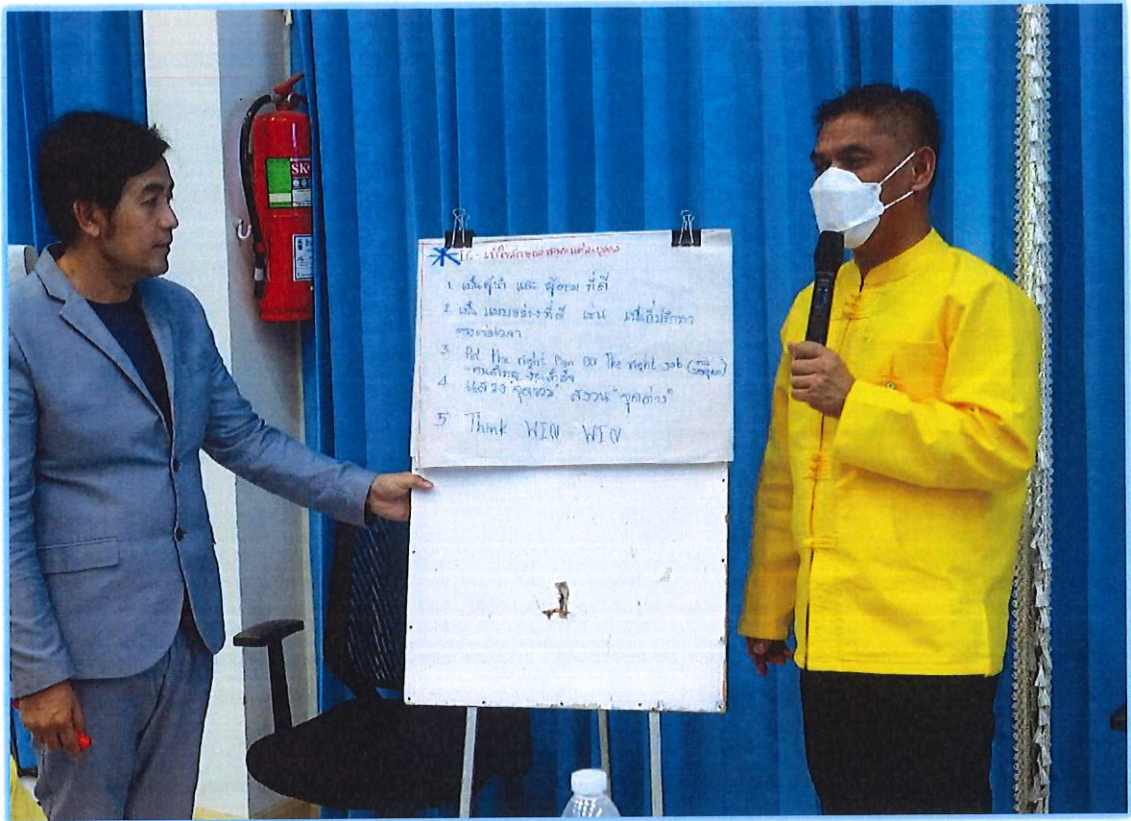 1. เป็นผู้นำ และ ผู้ตาม ที่ดี
2. เป็น แบบอย่างที่ดี เช่น เป็นที่ปรึกษา
ตรงต่อเวลา
3. Put the right man on The right job
4. แสวง "จุดร่วม" สงวน "จุดต่าง"
5. Think WIN WIN
SK